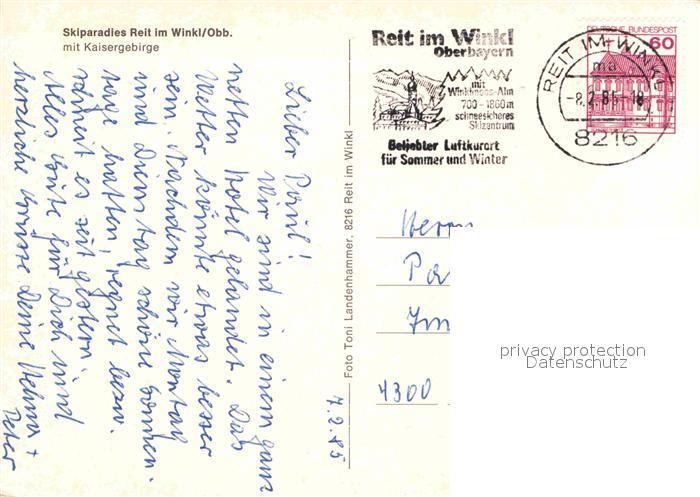 Skiparadies Reit im Winkl/Obb.
mit Kaisergebirge
Lieber Paul!
Wir sind in einem ganz
netten Hotel gelandet. Das
Wetter könnte etwas besser
sein. Nachdem wir Montag
und Dienstag schöne Sonnen-
tage hatten, regnet bezw.
schneit es seit gestern.
Alles Gute für Dich und
herzliche Grüsse Deine Helma +
Peter
7.2.85
Foto Toni Landenhammer, 8216 Reit im Winkl
Reit im Winkl
Oberbayern
mit
Winklmoos-Alm
700 - 1860 m
schneesicheres
Skizentrum
Beliebter Luftkurort
für Sommer und Winter
REIT IM WINKL
ma
-8.2.85-18
8216
DEUTSCHE BUNDESPOST
60
Herrn
Pa
4300
privacy protection
Datenschutz